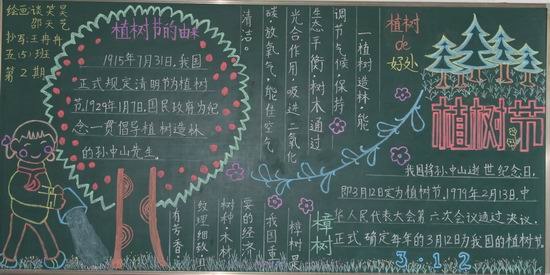 绘画:谈笑昊
邵天艺
抄写:王冉冉
五(5)班
第2期
植树节的由来
1915年7月31日,我国
正式规定清明节为植树
节,1929年1月7日,国民政府为纪
念一贯倡导植树造林
的孙中山先生。
植树
de
好处
一.植树造林,能
调节气候,保持
生态平衡,树木通过
光合作用,吸进二氧化
碳,放氧气,能使空气
清洁。
植树节
我国将孙中山逝世纪念日,
即3月12日定为植树节,1979年2月13日,中
华人民代表大会第六次会议通过决议,
正式确定每年的3月12日为我国的植树节.
3·12
樟树
樟树是
我国重
要的经济
树种,木
纹理细致
有芳香。